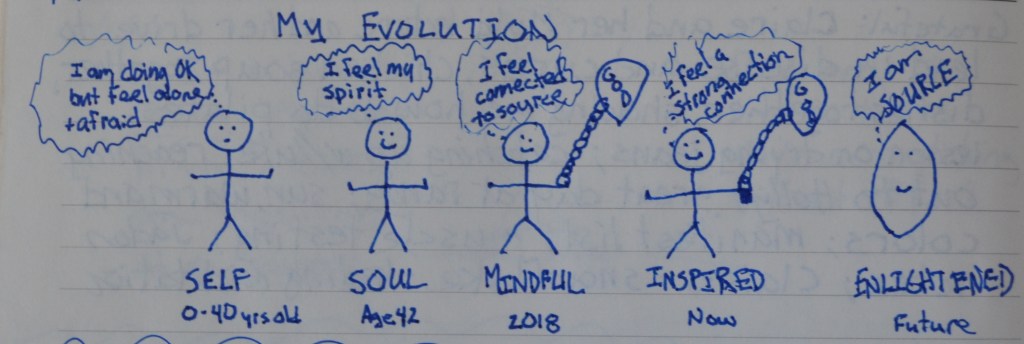 My EVOLUTION
I am doing OK
but feel alone
+ afraid
I feel my
spirit
I feel
connected
to source
GOD
I feel a
strong
connection
GOD
I am
SOURCE
SELF
0-40 yrs old
SOUL
Age 42
MINDFUL
2018
INSPIRED
Now
ENLIGHTENED
Future